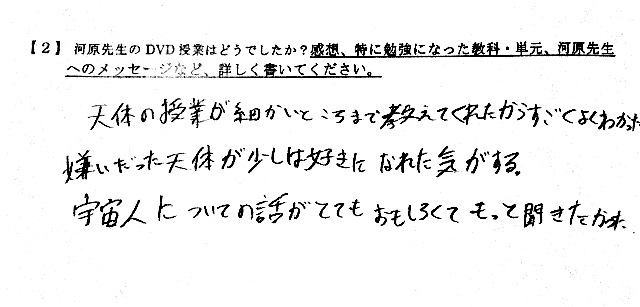 【2】 河原先生のDVD授業はどうでしたか？感想、特に勉強になった教科・単元、河原先生
へのメッセージなど、詳しく書いてください。
天体の授業が細かいところまで教えてくれたからすごくよくわかった
嫌いだった天体が少しは好きになれた気がする。
宇宙人についての話がとてもおもしろくてもっと聞きたかった